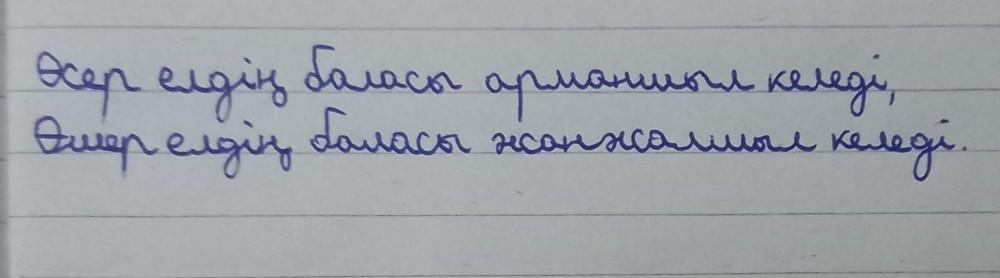 Өсер елдің баласы арманшыл келеді,
Өшер елдің баласы жанжалшыл келеді.